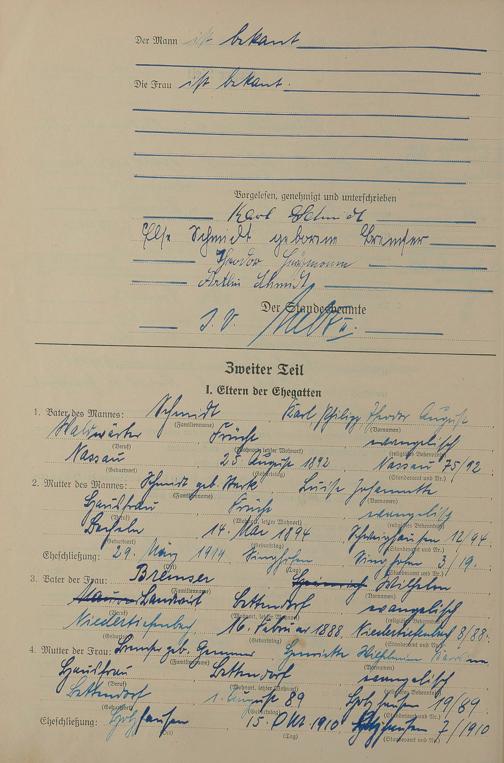 Der Mann ist bekant
Die Frau ist bekant.
Vorgelesen, genehmigt und unterschrieben
Karl Schmidt
Else Schmidt geborene Bremser
Theodor
Schmidt
Der Standesbeamte
J. V.
Zweiter Teil
I. Eltern der Ehegatten
1. Vater des Mannes: Schmidt Karl Philipp Theodor August
(Familienname) (Vornamen)
Waldwärter Frücht evangelisch
(Beruf) (Wohnort, letzter Wohnort) (religiöses Bekenntnis)
Nassau 25 August 1892 Nassau 75/92
(Geburtsort) (Geburtstag) (Standesamt und Nr.)
2. Mutter des Mannes: Schmidt geb. Luise Johannette
(Familienname) (Vornamen)
Hausfrau Frücht evangelisch
(Beruf) (Wohnort, letzter Wohnort) (religiöses Bekenntnis)
14. Mai 1894 12/94
(Geburtsort) (Geburtstag) (Standesamt und Nr.)
Eheschließung: 29. März 1919 Singhofen Singhofen 3/19.
(Ort) (Tag) (Standesamt und Nr.)
3. Vater der Frau: Bremser Heinrich Wilhelm
(Familienname) (Vornamen)
Maurer Landwirt Bettendorf evangelisch
(Beruf) (Wohnort, letzter Wohnort) (religiöses Bekenntnis)
Niedertiefenbach 16. Februar 1888. Niedertiefenbach 8/88.
(Geburtsort) (Geburtstag) (Standesamt und Nr.)
4. Mutter der Frau: Bremser geb. Henriette Wilhelmine Karoline
(Familienname) (Vornamen)
Hausfrau Bettendorf evangelisch
(Beruf) (Wohnort, letzter Wohnort) (religiöses Bekenntnis)
Bettendorf 1. August 89 Holzhausen 19/89.
(Geburtsort) (Geburtstag) (Standesamt und Nr.)
Eheschließung: Holzhausen 15. Okt. 1910 Holzhausen 7/1910
(Ort) (Tag) (Standesamt und Nr.)